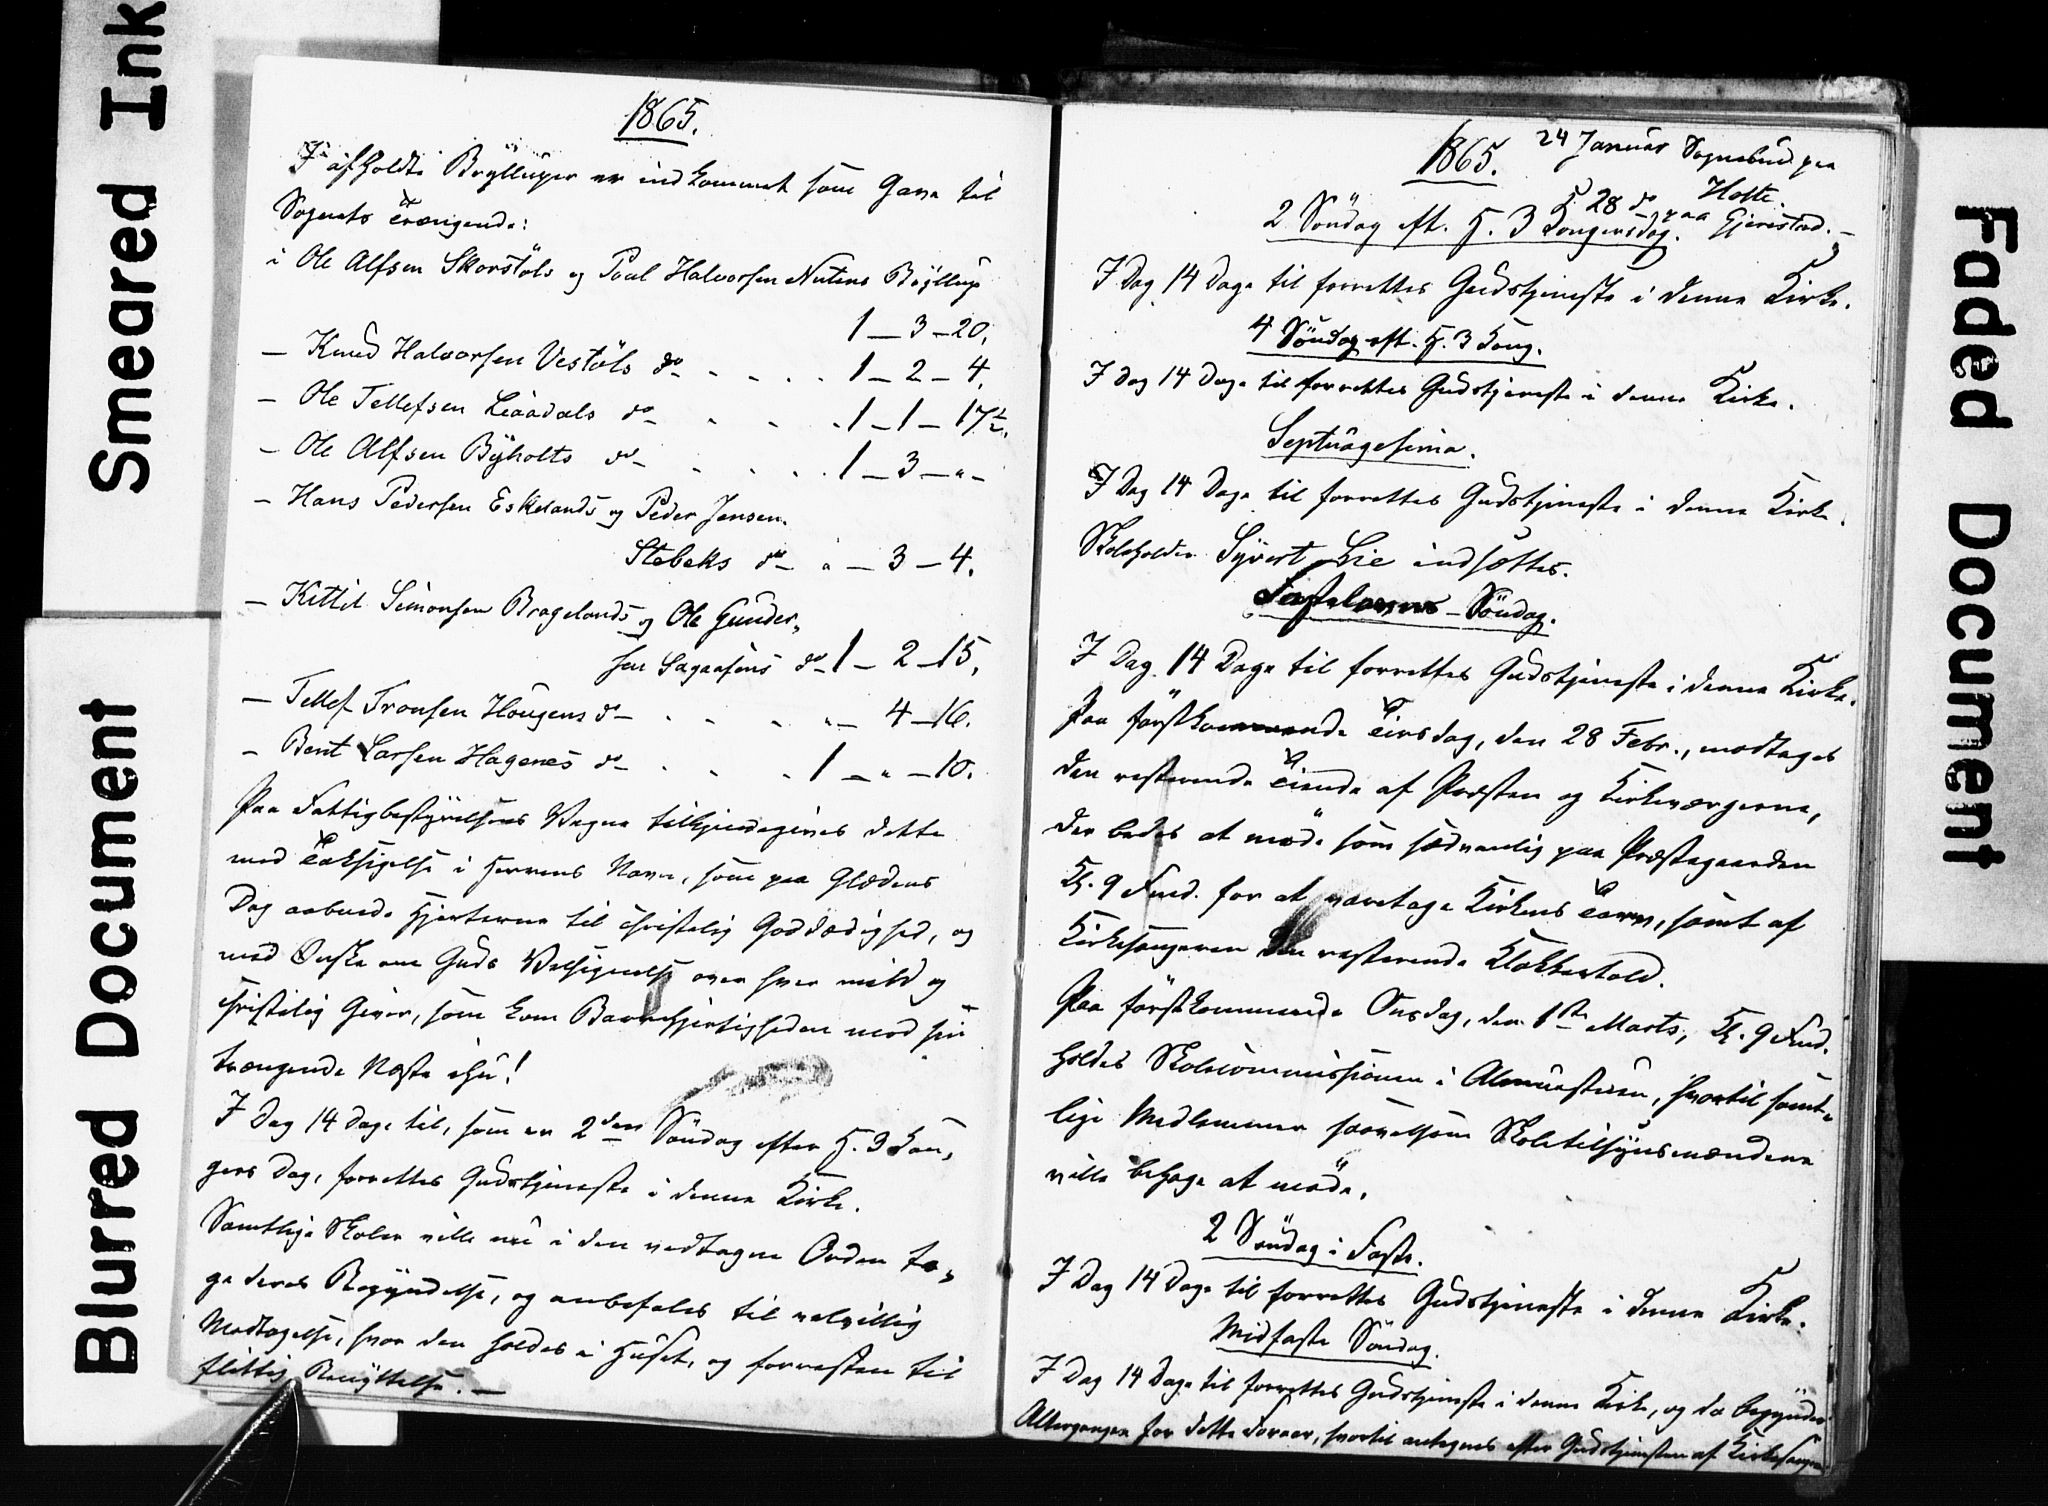 Smeared Ink
Blurred Document
1865.
I afholdte Brÿlluper er indkommet som Gave til
Sognets Trængende:
i Ole Alfsen Skorstöls og Poul Halvorsen Nutens Brÿllup
1 – 3 – 20.
– Knud Halvorsen Vestöls do – . . . . 1 – 2 – 4.
– Ole Tellefsen Leaadals do – . . . 1 – 1 – 17½.
– Ole Alfsen Bÿholts do – . . . . 1 – 3 – " –
– Hans Pedersen Eskelands og Peder Jensen
Stebeks do – " – 3 – 4.
– Kittil Simonsen Bragelands og Ole Gunder-
sen Lagaasens do – 1 – 2 – 15.
– Tellef Tronsen Hougens do – . . . " – 4 – 16.
– Bent Larsen Hagenes do – . . . . 1 – " – 10.
Paa Fattigbestÿrelsens Vegne tilkjendegives dette
med Taksigelse i Herrens Navn, som paa Glædens
Dag aabnede Hjerterne til christelig Goddædighed, og
med Ønske om Guds Velsignelse over hver mild og
christelig Giver, som kom Barmhjertigheden mod sin
trængende Næste ihu!
I Dag 14 Dage til, som er 2den Söndag efter H. 3 Kon-
gers Dag, forrettes Gudstjeneste i denne Kirke.
Samtlige Skoler ville nu i den vedtagne Orden ta-
ge deres Begÿndelse, og anbefales til velvillig
Modtagelse, hvor den holdes i Huset, og forresten til
flittig Benÿttelse. –
1865.
24 Januar Sognebud paa
Holte.
28 do paa Gjerestad. –
2 Söndag eft. H. 3 Kongersdag.
I Dag 14 Dage til forrettes Gudstjeneste i denne Kirke.
4 Söndag eft. H. 3 Kong.
I Dag 14 Dage til forrettes Gudstjeneste i denne Kirke.
Septuagesima.
I Dag 14 Dage til forrettes Gudstjeneste i denne Kirke.
Skoleholder Sÿvert Lie indsættes.
Fastelavns – Söndag.
I Dag 14 Dage til forrettes Gudstjeneste i denne Kirke.
Paa förstkommende Tirsdag, den 28 Febr., modtages
den resterende Tiende af Præsten og Kirkeværgerne,
der bedes at möde som sædvanlig paa Præstegaarden
Kl. 9 Fmd. for at varetage Kirkens Tarv, samt af
Kirkesangeren den resterende Klokkertold.
Paa förstkommende Onsdag, den 1ste Marts, Kl. 9 Fmd.
holdes Skolecommissionen i Almuestuen, hvortil samt-
lige Medlemmer saavelsom Skoletilsÿnsmændene
ville behage at möde.
2 Söndag i Faste.
I Dag 14 Dage til forrettes Gudstjeneste i denne Kirke.
Midfaste Söndag.
I Dag 14 Dage til forrettes Gudstjeneste i denne Kirke, og da begÿnder
Altergangen for dette Foraar, hvortil antegnes efter Gudstjenesten af Kirkesangeren.
Faded Document